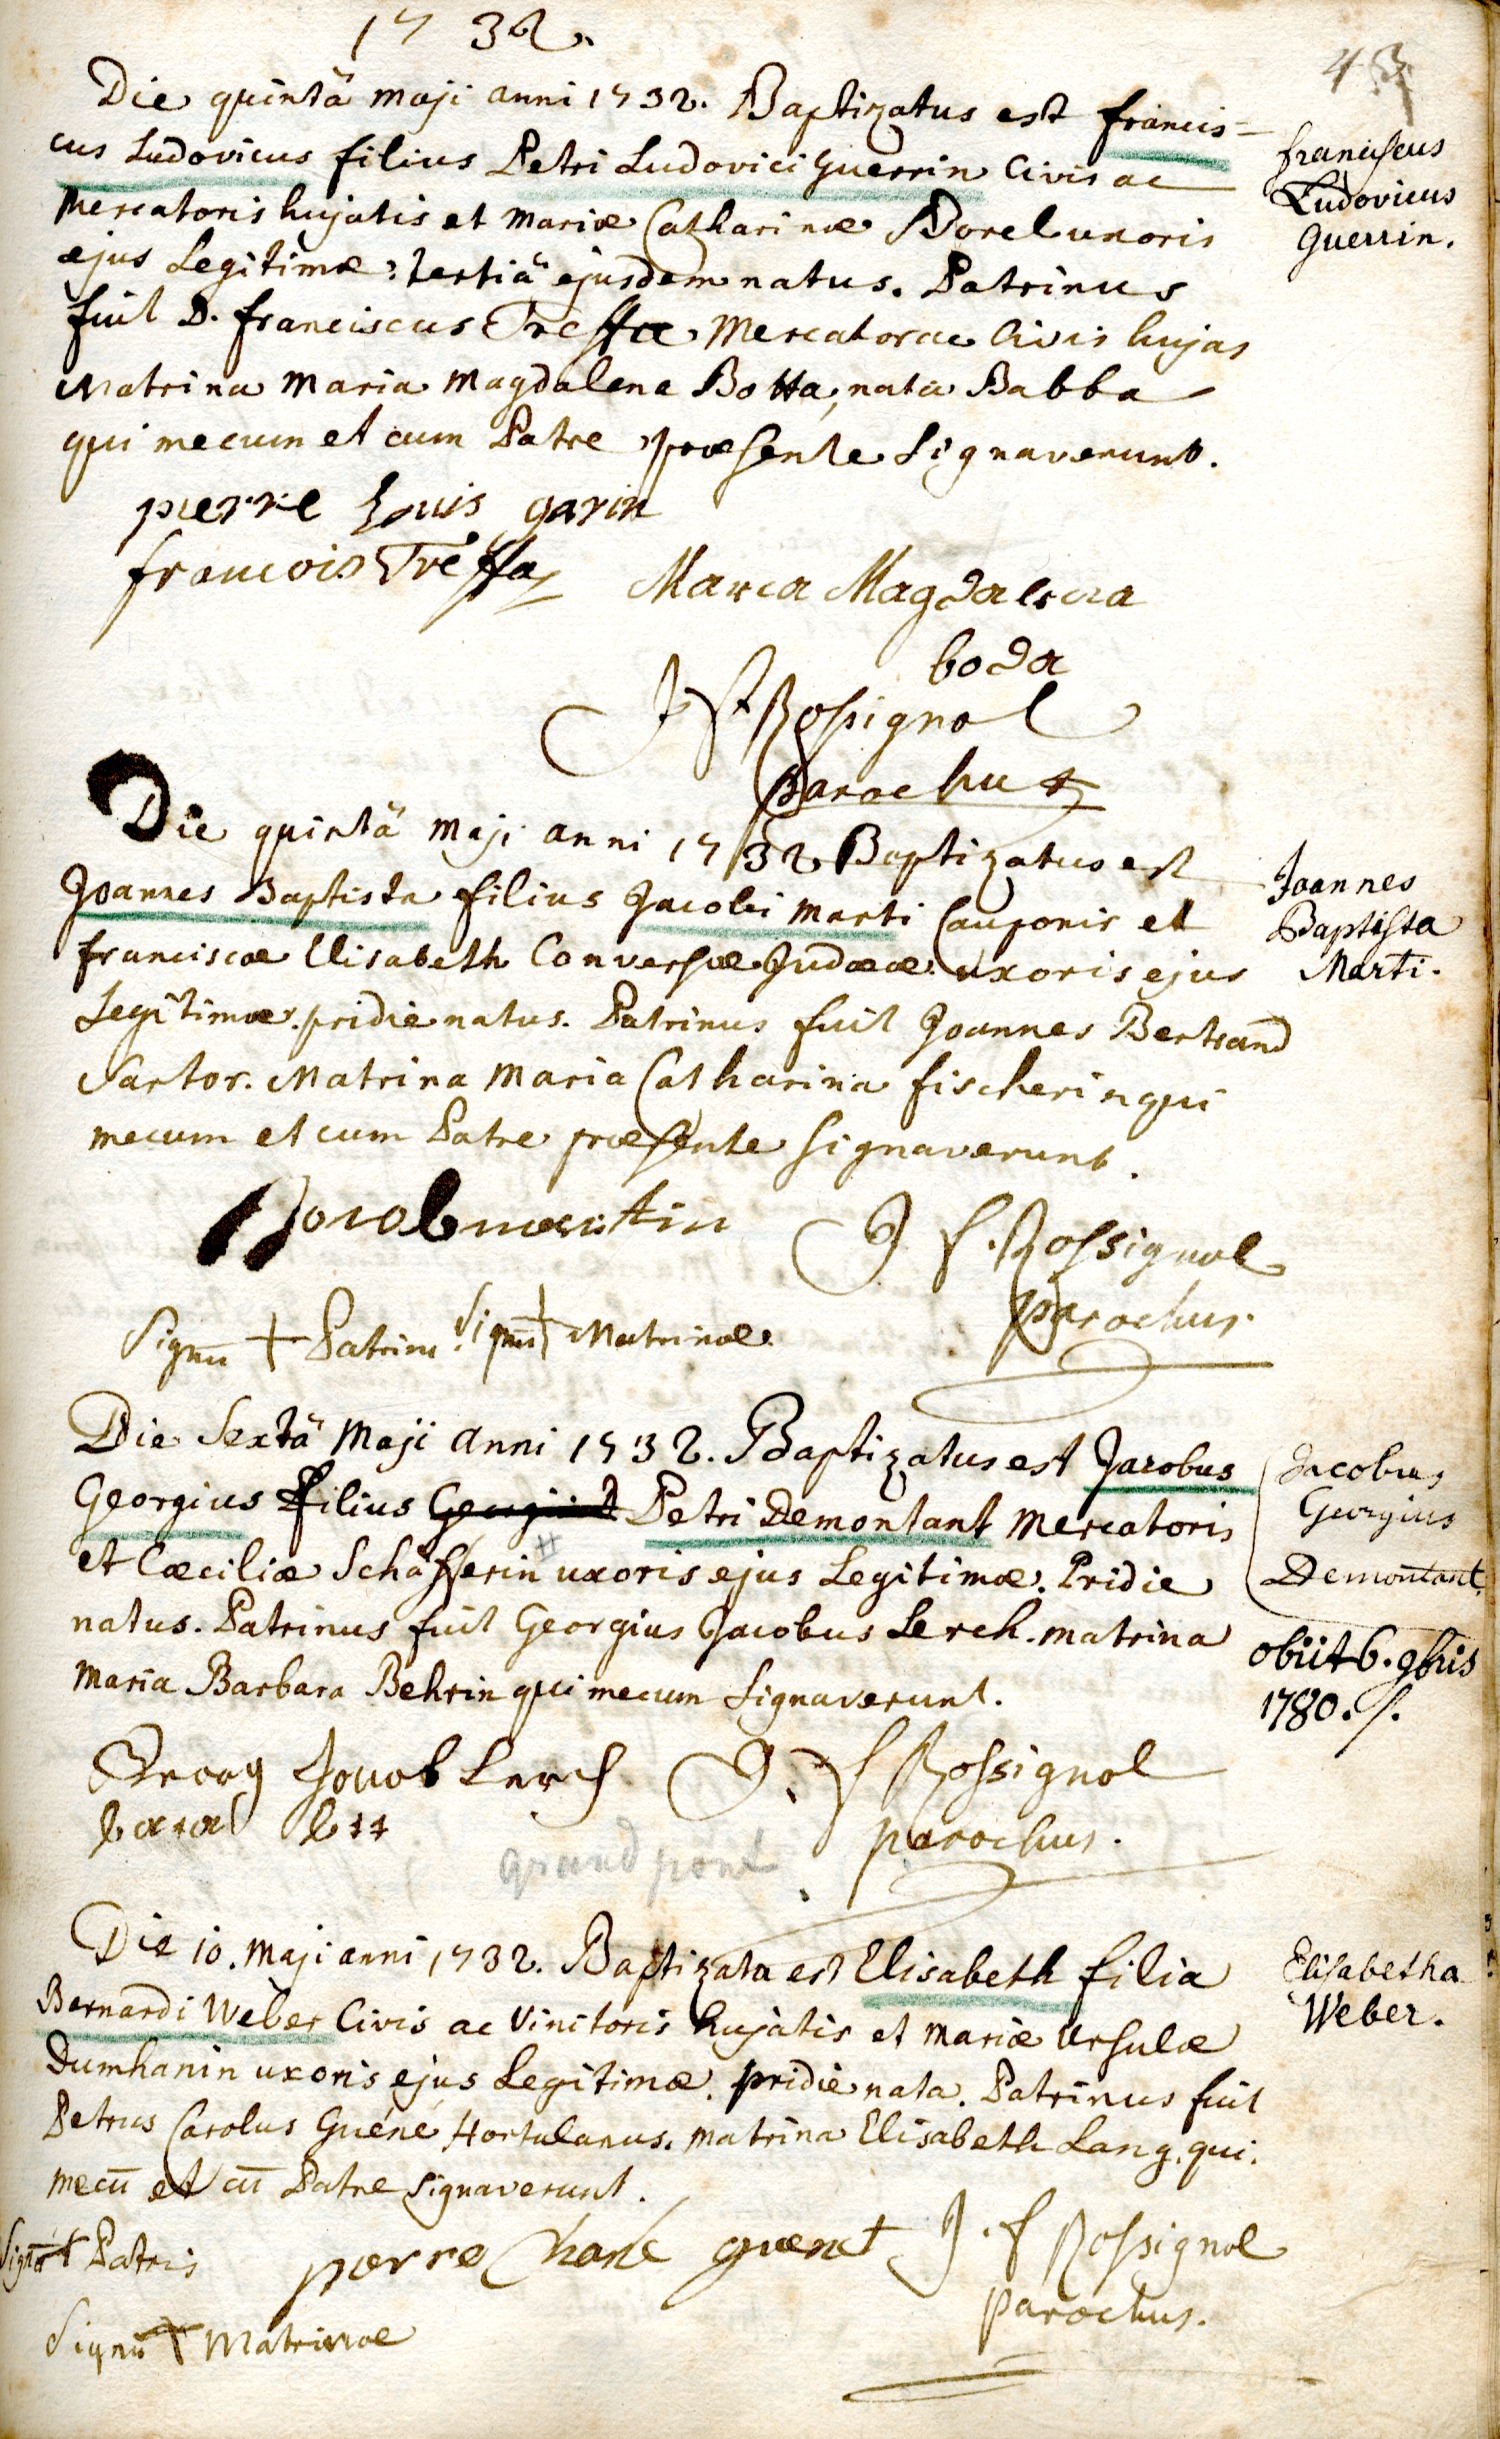 1732.
43
Die quintâ maji anni 1732. Baptizatus est francis-
cus Ludovicus filius Petri Ludovici Guerrin Civis ac
Mercatoris hujatis et Mariæ Catharinæ Borel uxoris
ejus Legitimæ: tertiâ ejusdem natus. Patrinus
fuit D. franciscus Treffa Mercator ac Civis hujas
Matrina Maria Magdalena Botta, nata Babba
qui mecum et cum Patre præsente Signaverunt.
franciscus
Ludovicus
Guerrin.
pierre Louis garin
francois Treffa
Maria Magdalena
boda
J f Rossignol
Parochus
Die quintâ Maji anni 1732 Baptizatus est
Joannes Baptista filius Jacobi Marti Cauponis et
franciscæ Elisabeth Conversæ Judææ uxoris ejus
Legitimæ. pridie natus. Patrinus fuit Joannes Bertrand
Sartor. Matrina Maria Catharina fischerin qui
mecum et cum Patre præsente signaverunt.
Joannes
Baptista
Marti.
Jacob martin
J f. Rossignol
parochus.
Signū + Patrini. Signū + Matrinæ
Die Sextâ Maji anni 1732. Baptizatus est Jacobus
Georgius filius Georgii Petri Demontant Mercatoris
et Cæciliæ Schäfferin uxoris ejus Legitimæ. Pridie
natus. Patrinus fuit Georgius Jacobus Lerch. matrina
Maria Barbara Behrin qui mecum Signaverunt.
Jacobus
Georgius
Demontant.
obiit 6. 9bris
1780. /.
Georg Jacob Lerch
J. f Rossignol
parochus.
grand pont
Die 10. Maji anni 1732. Baptizata est Elisabeth filia
Bernardi Weber Civis ac Vinitoris hujatis et Mariæ Ursulæ
Dumhanin uxoris ejus Legitimæ. pridie nata. Patrinus fuit
Petrus Carolus Guéné Hortulanus. matrina Elisabeth Lang. qui.
mecū et cū Patre Signaverunt.
Elisabetha
Weber.
Signū + Patris
pierre
J. f Rossignol
parochus.
Signū + Matrinæ